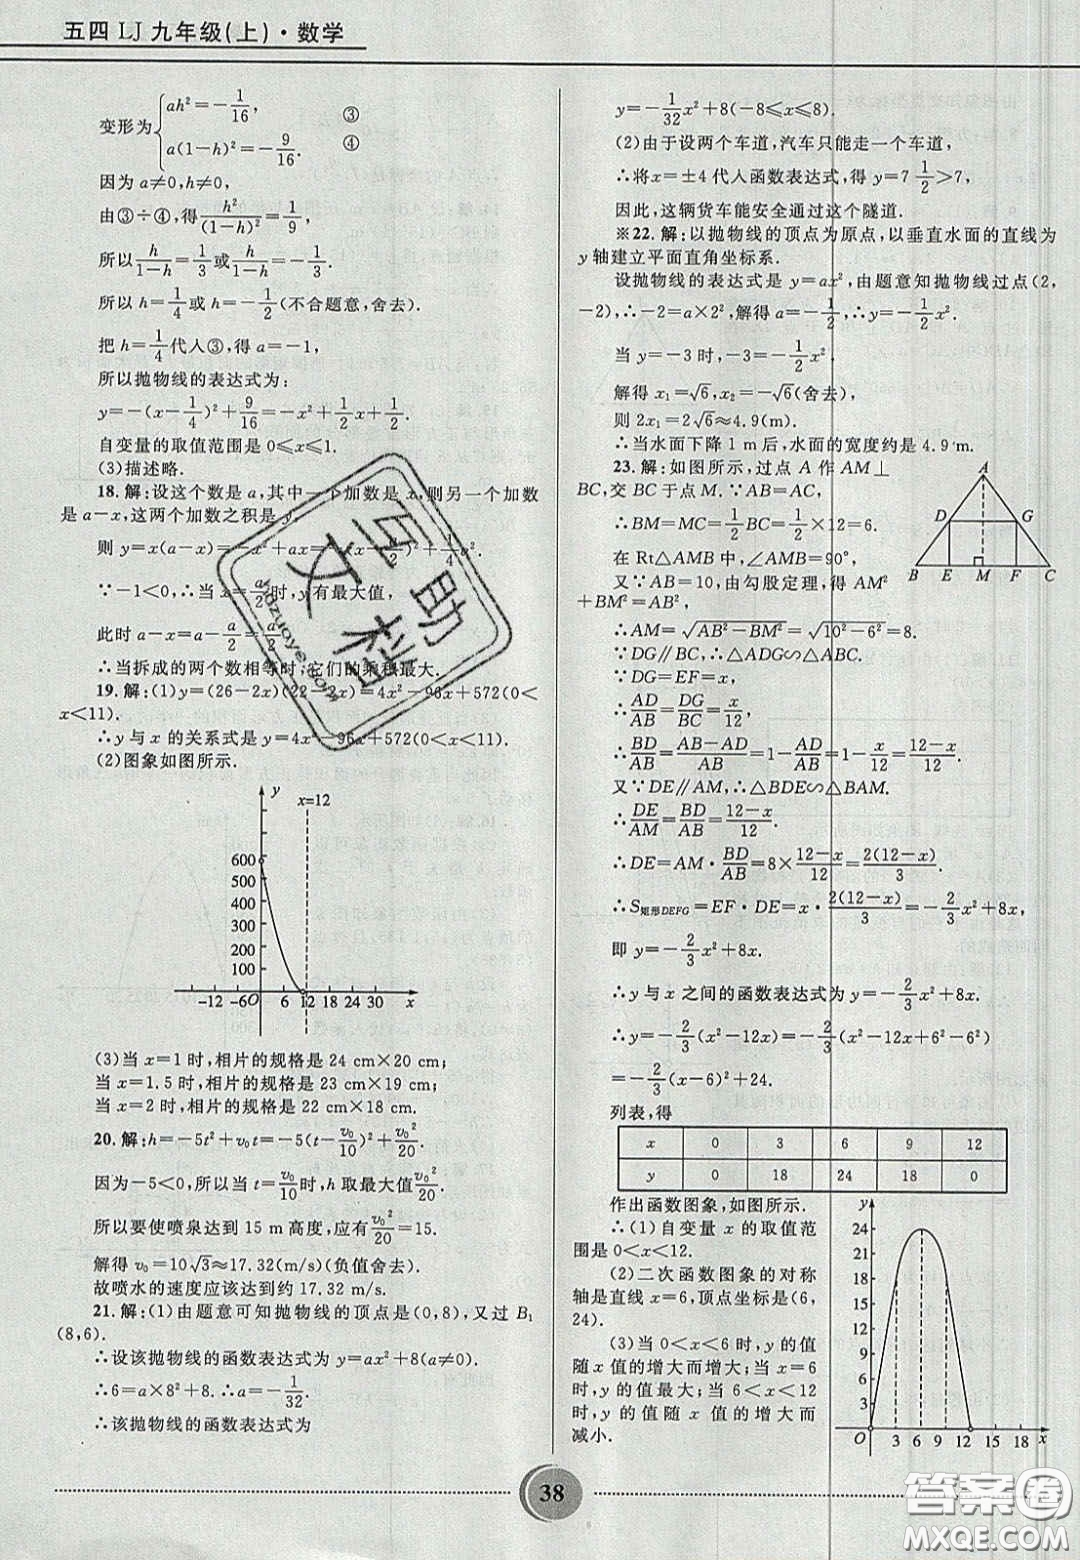 五四 LJ 九年级(上)·数学
变形为{ah²=-1/16, ③
a(1-h)²=-9/16. ④
因为 a≠0,h≠0,
由③÷④,得h²/(1-h)²=1/9,
所以h/(1-h)=1/3或h/(1-h)=-1/3.
所以 h=1/4或 h=-1/2(不合题意,舍去).
把 h=1/4代人③,得 a=-1,
所以抛物线的表达式为:
y=-(x-1/4)²+9/16=-x²+1/2x+1/2.
自变量的取值范围是 0≤x≤1.
(3)描述略.
18.解:设这个数是 a,其中一个加数是 x,则另一个加数
是 a-x,这两个加数之积是 y,
则 y=x(a-x)=-x²+ax=-(x-a/2)²+1/4a².
∵-1<0,∴当 x=a/2时,y 有最大值,
此时 a-x=a-a/2=a/2.
∴当拆成的两个数相等时,它们的乘积最大.
19.解:(1)y=(26-2x)(22-2x)=4x²-96x+572(0<
x<11).
∴y 与 x 的关系式是 y=4x²-96x+572(0<x<11).
(2)图象如图所示.
y
x=12
600
500
400
300
200
100
-12 -6 O 6 12 18 24 30 x
(3)当 x=1 时,相片的规格是 24 cm×20 cm;
当 x=1.5 时,相片的规格是 23 cm×19 cm;
当 x=2 时,相片的规格是 22 cm×18 cm.
20.解:h=-5t²+v₀t=-5(t-v₀/10)²+v₀²/20.
因为-5<0,所以当 t=v₀/10时,h 取最大值v₀²/20.
所以要使喷泉达到 15 m 高度,应有v₀²/20=15.
解得 v₀=10√3≈17.32(m/s)(负值舍去).
故喷水的速度应该达到约 17.32 m/s.
21.解:(1)由题意可知抛物线的顶点是(0,8),又过 B₁
(8,6).
∴设该抛物线的函数表达式为 y=ax²+8(a≠0).
∴6=a×8²+8.∴a=-1/32.
∴该抛物线的函数表达式为
y=-1/32x²+8(-8≤x≤8).
(2)由于设两个车道,汽车只能走一个车道,
∴将 x=±4 代人函数表达式,得 y=7 1/2>7,
因此,这辆货车能安全通过这个隧道.
※22.解:以抛物线的顶点为原点,以垂直水面的直线为
y 轴建立平面直角坐标系.
设抛物线的表达式是 y=ax²,由题意知抛物线过点(2,
-2),∴-2=a×2²,解得 a=-1/2,∴y=-1/2x².
当 y=-3 时,-3=-1/2x².
解得 x₁=√6,x₂=-√6(舍去),
则 2x₁=2√6≈4.9(m).
∴当水面下降 1 m 后,水面的宽度约是 4.9 m.
23.解:如图所示,过点 A 作 AM⊥
BC,交 BC 于点 M.∵AB=AC,
∴BM=MC=1/2BC=1/2×12=6.
在 Rt△AMB 中,∠AMB=90°,
又∵AB=10,由勾股定理,得 AM²
+BM²=AB²,
∴AM=√(AB²-BM²)=√(10²-6²)=8.
∵DG∥BC,∴△ADG∽△ABC.
∵DG=EF=x,
∴AD/AB=DG/BC=x/12,
∴BD/AB=(AB-AD)/AB=1-AD/AB=1-x/12=(12-x)/12.
又∵DE∥AM,∴△BDE∽△BAM.
∴DE/AM=BD/AB=(12-x)/12.
∴DE=AM·BD/AB=8×(12-x)/12=2(12-x)/3.
∴S矩形DEFG=EF·DE=x·2(12-x)/3=-2/3x²+8x,
即 y=-2/3x²+8x.
∴y 与 x 之间的函数表达式为 y=-2/3x²+8x.
∴y=-2/3(x²-12x)=-2/3(x²-12x+6²-6²)
=-2/3(x-6)²+24.
列表,得
x 0 3 6 9 12
y 0 18 24 18 0
A
D G
B E M F C
作出函数图象,如图所示.
∴(1)自变量 x 的取值范
围是 0<x<12.
(2)二次函数图象的对称
轴是直线 x=6,顶点坐标是(6,
24).
(3)当 0<x<6 时,y 的值
随 x 值的增大而增大;当 x=6
时,y 的值最大;当 6<x<12
时,y 的值随 x 值的增大而
减小.
y
24
21
18
15
12
9
6
3
O 3 6 9 12 15 18 x
38
互助文科
yuzuoye.com
答案圈
MXQE.COM